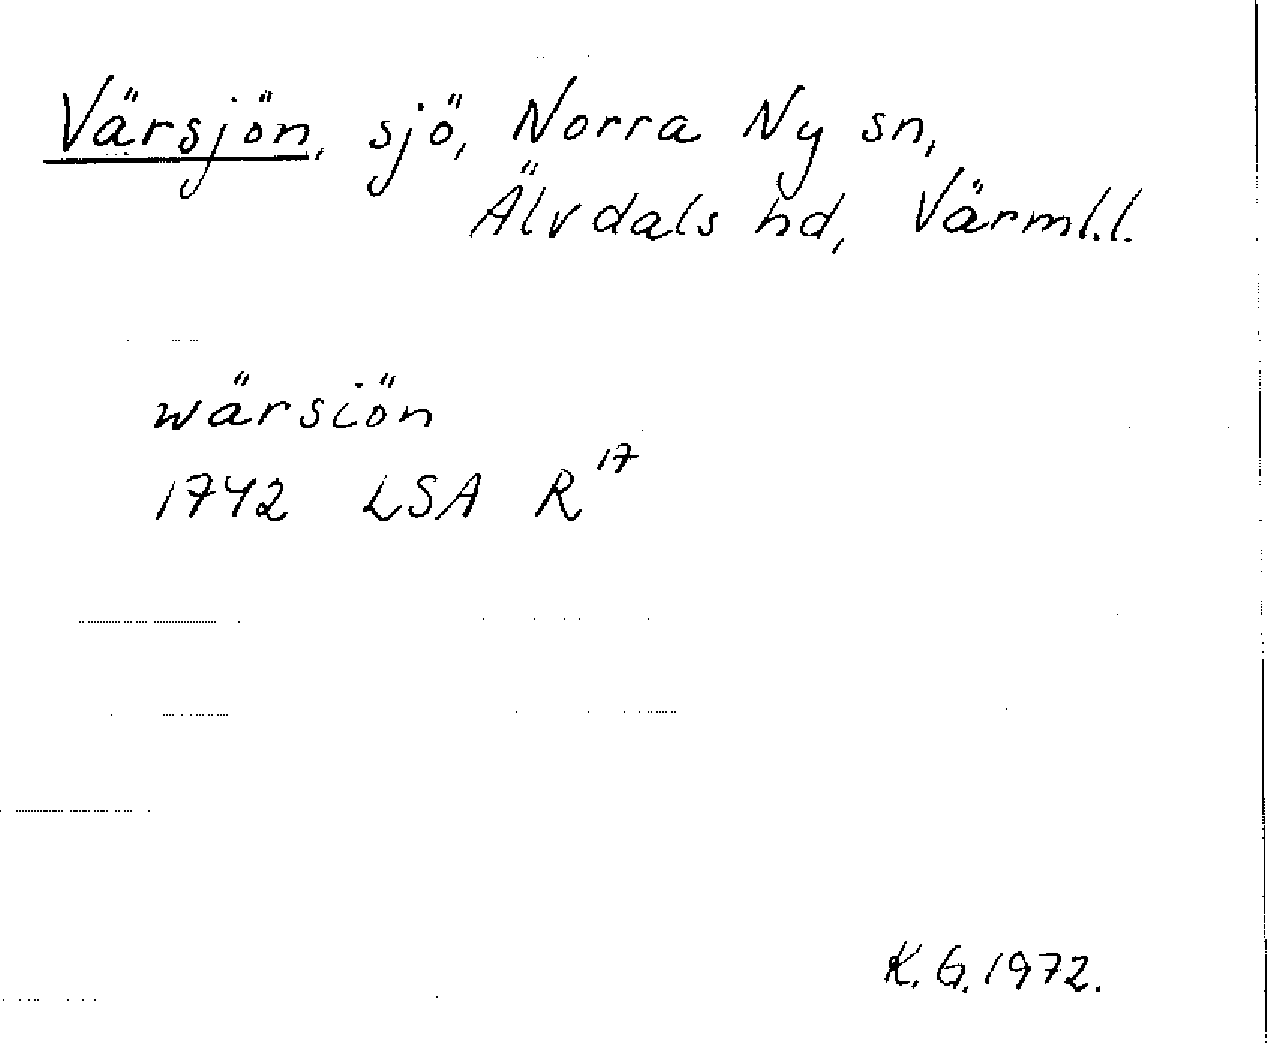 Värsjön, sjö, Norra Ny sn,
Älvdals hd, Värml.l.
wärsiön
1742 LSA R¹⁷
K.G. 1972.